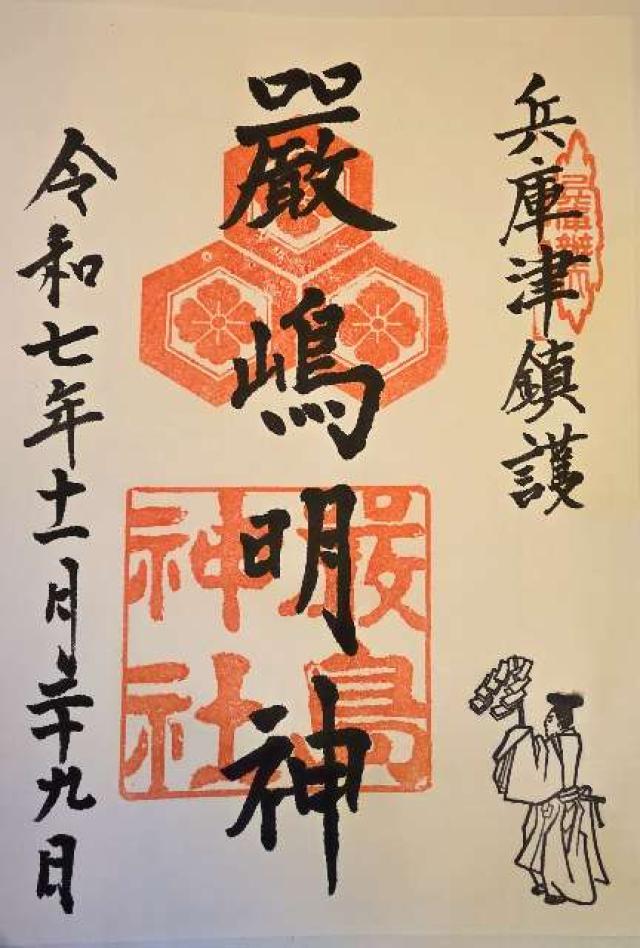 兵庫津鎮護
嚴嶋明神
令和七年十一月二十九日
嚴島
神社